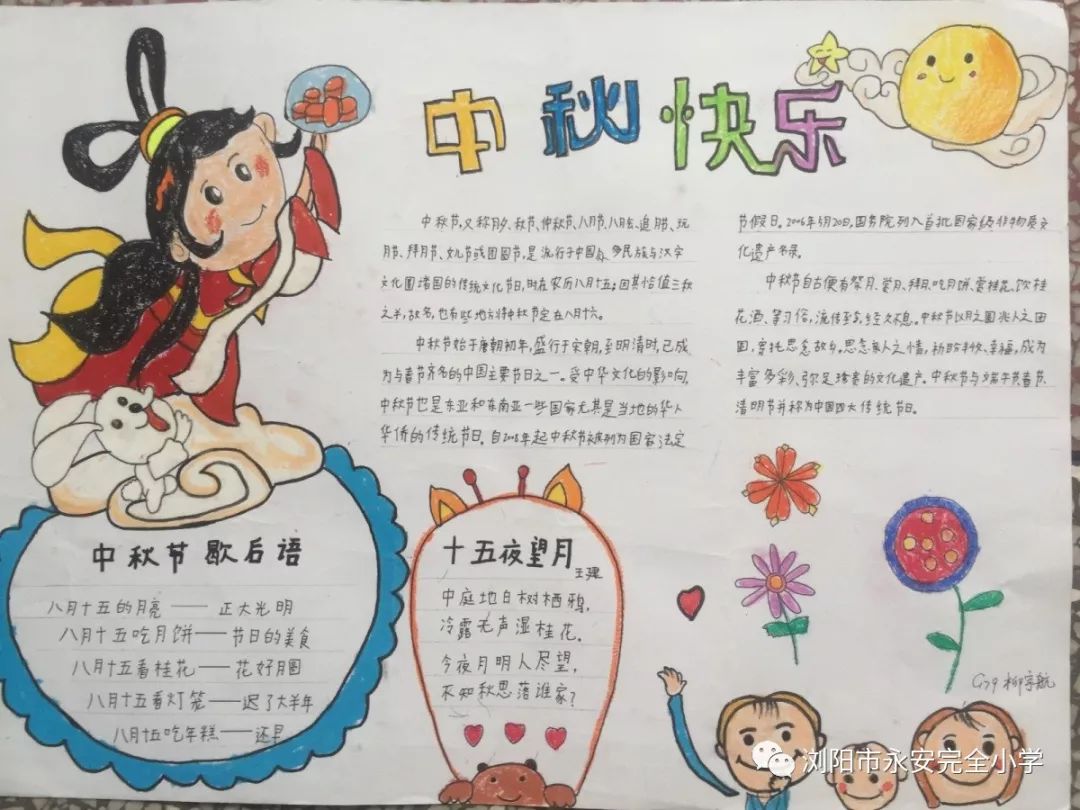 中秋快乐
中秋节,又称月夕、秋节、仲秋节、八月节、八月会、追月节、玩
月节、拜月节、女儿节或团圆节,是流行于中国众多民族与汉字
文化圈诸国的传统文化节日,时在农历八月十五;因其恰值三秋
之半,故名,也有些地方将中秋节定在八月十六。
中秋节始于唐朝初年,盛行于宋朝,至明清时,已成
为与春节齐名的中国主要节日之一。受中华文化的影响,
中秋节也是东亚和东南亚一些国家尤其是当地的华人
华侨的传统节日。自2008年起中秋节被列为国家法定
节假日。2006年5月20日,国务院列入首批国家级非物质文
化遗产名录。
中秋节自古便有祭月、赏月、拜月、吃月饼、赏桂花、饮桂
花酒、等习俗,流传至今,经久不息。中秋节以月之圆兆人之团
圆,寄托思念故乡,思念亲人之情,祈盼丰收、幸福,成为
丰富多彩、弥足珍贵的文化遗产。中秋节与端午节、春节、
清明节并称为中国四大传统节日。
中秋节歇后语
八月十五的月亮——正大光明
八月十五吃月饼——节日的美食
八月十五看桂花——花好月圆
八月十五看灯笼——迟了大半年
八月十五吃年糕——还早
十五夜望月
王建
中庭地白树栖鸦,
冷露无声湿桂花。
今夜月明人尽望,
不知秋思落谁家?
G79 柳宇航
浏阳市永安完全小学